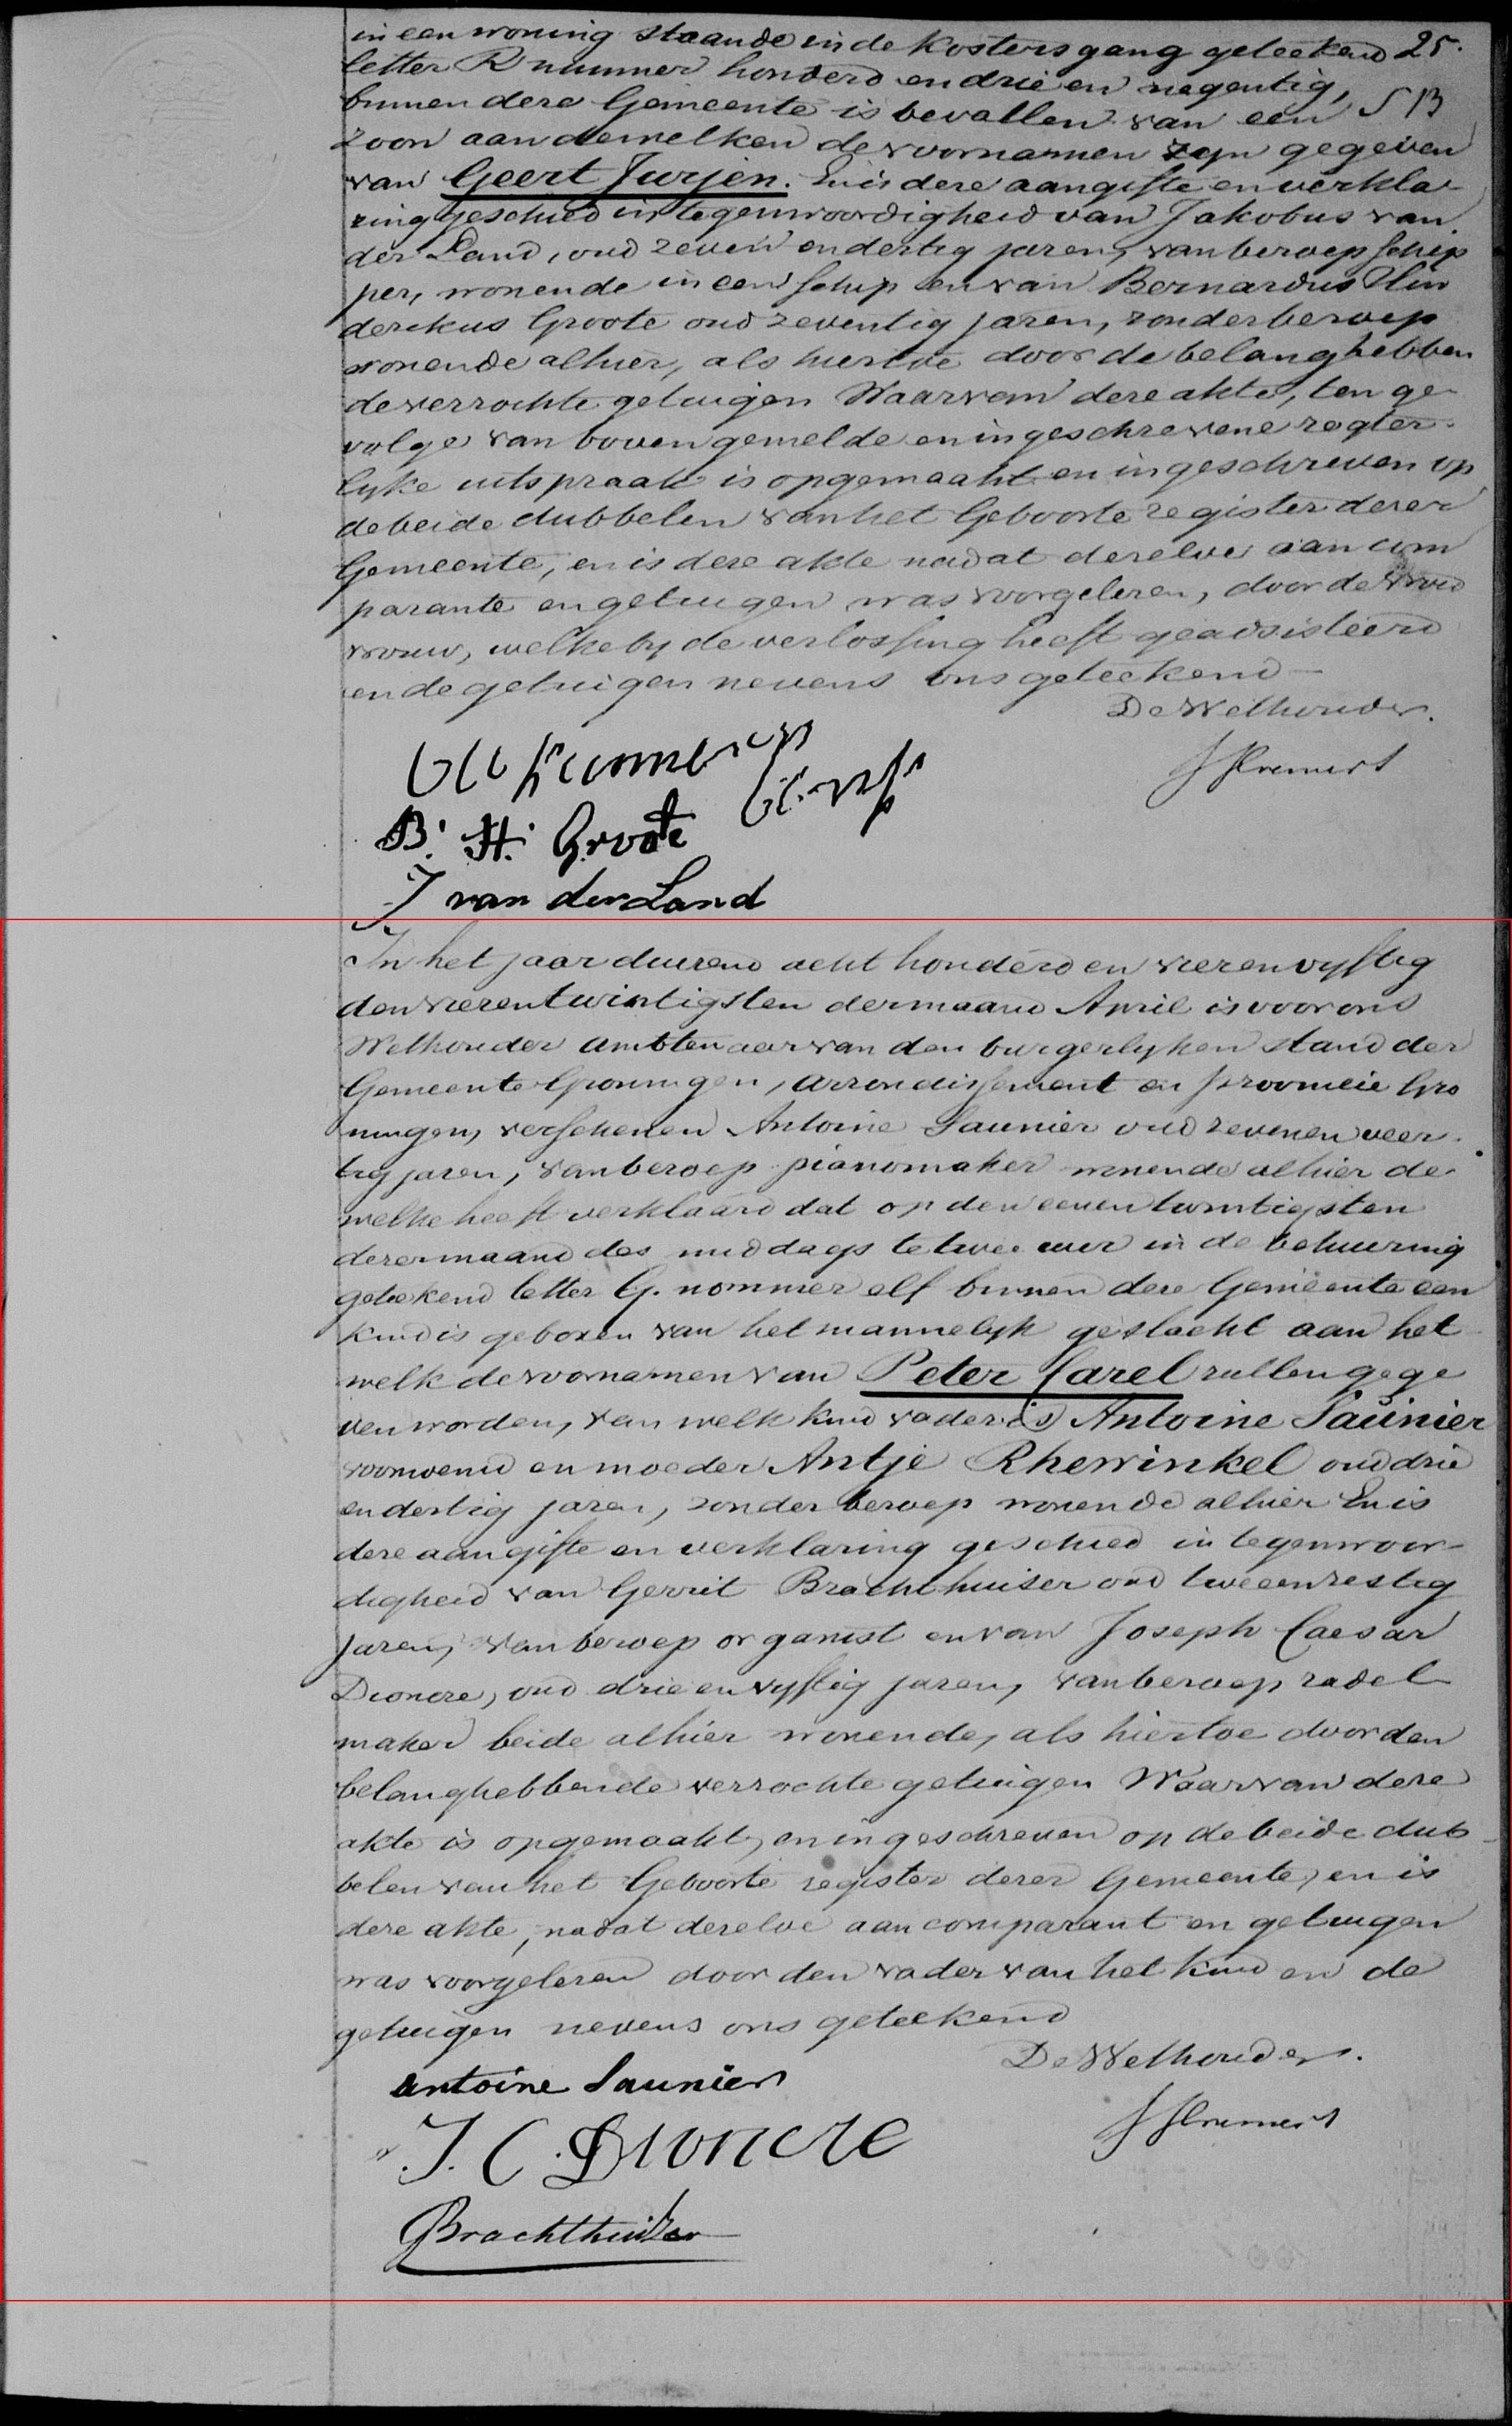 in een woning staande in de Kostersgang geteekend 25.
letter R nummer honderd en drie en negentig, SB
binnen deze Gemeente is bevallen van een
zoon aan demelken de voornamen zyn gegeven
van Geert Jurjen. En is deze aangifte en verkla-
ring geschied in tegenwoordigheid van Jakobus van
der Land, oud zeven en dertig jaren, van beroep schip
per, wonende in een schip en van Bernardus Hin
derikus Groote oud zeventig jaren, zonder beroep
wonende alhier, als hiertoe door de belanghebben
de verzochte getuigen Waarvan deze akte, ten ge-
volge van bovengemelde en ingeschrevene regter-
lyke uitspraak is opgemaakt en ingeschreven op
de beide dubbelen van het Geboorte register dezer
Gemeente, en is deze akte nadat dezelve aan com
parante en getuigen was voorgelezen, door de vroed
vrouw, welke by de verlossing heeft geadsisteerd
en de getuigen nevens ons geteekend —
De Wethouder.
B. H. Groote
J van der Land
In het jaar duizend acht honderd en vier en vyftig
den vierentwintigsten der maand April is voor ons
Wethouder Ambtenaar van den burgerlyken stand der
Gemeente Groningen, arrondissement en provincie Gro
ningen, verschenen Antoine Saunier oud zeven en veer-
tig jaren, van beroep pianomaker wonende alhier de-
welke heeft verklaard dat op den eenentwintigsten
dezer maand des middags te twee uur in de behuizing
geteekend letter G. nommer elf binnen deze Gemeente een
kind is geboren van het mannelyk geslacht aan het
welk de voornamen van Peter Carel zullen gege
ven worden, van welk kind vader is Antoine Saunier
voornoemd en moeder Antje Rhewinkel oud drie
en dertig jaren, zonder beroep wonende alhier En is
deze aangifte en verklaring geschied in tegenwoor-
digheid van Gerrit Brachthuiser oud twee en zestig
jaren, van beroep organist en van Joseph Caesar
Dioncre, oud drie en vyftig jaren, van beroep zadel
maker beide alhier wonende, als hiertoe door den
belanghebbende verzochte getuigen Waarvan deze
akte is opgemaakt, en ingeschreven op de beide dub
belen van het Geboorte register dezer Gemeente, en is
deze akte, nadat dezelve aan comparant en getuigen
was voorgelezen door den vader van het kind en de
getuigen nevens ons geteekend
De Wethouder.
Antoine Saunier
J. C. Dioncre
Brachthuizer